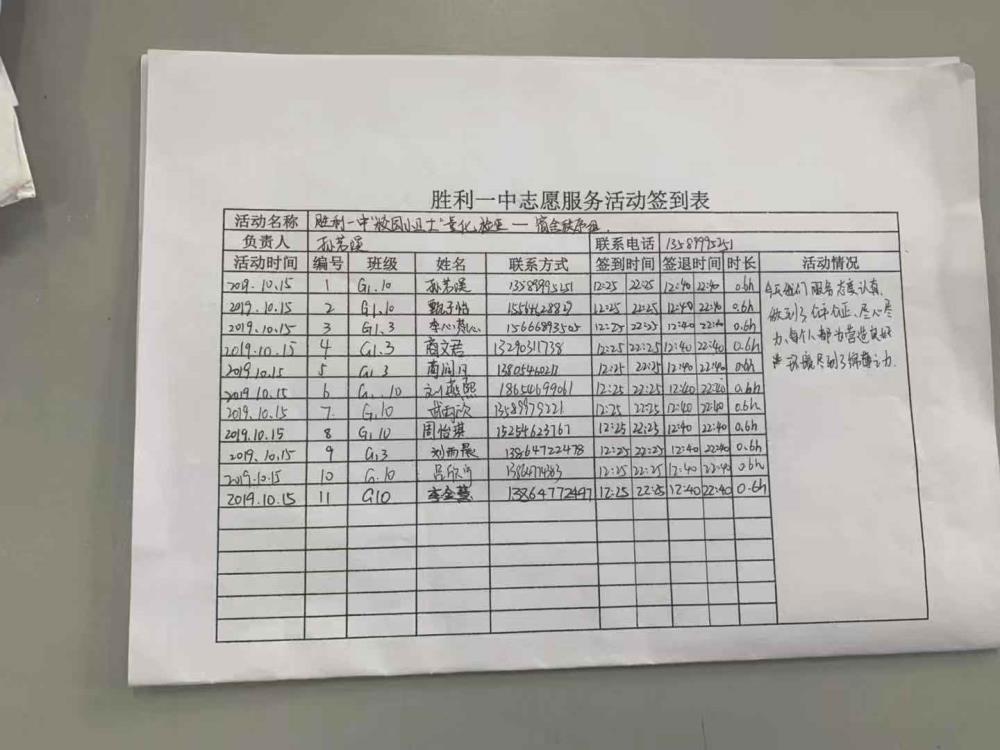 胜利一中志愿服务活动签到表
活动名称 胜利一中"校园小卫士"量化检查一宿舍秩序组
负责人 孙若溪 联系电话 13589995251
活动时间 编号 班级 姓名 联系方式 签到时间 签退时间 时长 活动情况
2019.10.15 1 G1.10 孙若溪 13589995251 12:25 22:25 12:40 22:40 0.6h
2019.10.15 2 G1.10 12:25 22:25 12:40 22:40 0.6h
2019.10.15 3 G1.3 15666893505 12:25 22:25 12:40 22:40 0.6h
2019.10.15 4 G1.3 商文君 13290311738 12:25 22:25 12:40 22:40 0.6h
2019.10.15 5 G1.3 12:25 22:25 12:40 22:40 0.6h
2019.10.15 6 G1.10 18654699061 12:25 22:25 12:40 22:40 0.6h
2019.10.15 7 G1.10 13589979221 12:25 22:25 12:40 22:40 0.6h
2019.10.15 8 G1.10 周怡琪 15254623767 12:25 22:25 12:40 22:40 0.6h
2019.10.15 9 G1.3 刘雨晨 13864722478 12:25 22:25 12:40 22:40 0.6h
2019.10.15 10 G1.10 12:25 22:25 12:40 22:40 0.6h
2019.10.15 11 G10 李金慧 13864772497 12:25 22:25 12:40 22:40 0.6h
今天我们服务态度认真,
做到了公平公正、尽心尽
力、每个人都为营造良好
环境尽到了绵薄之力.